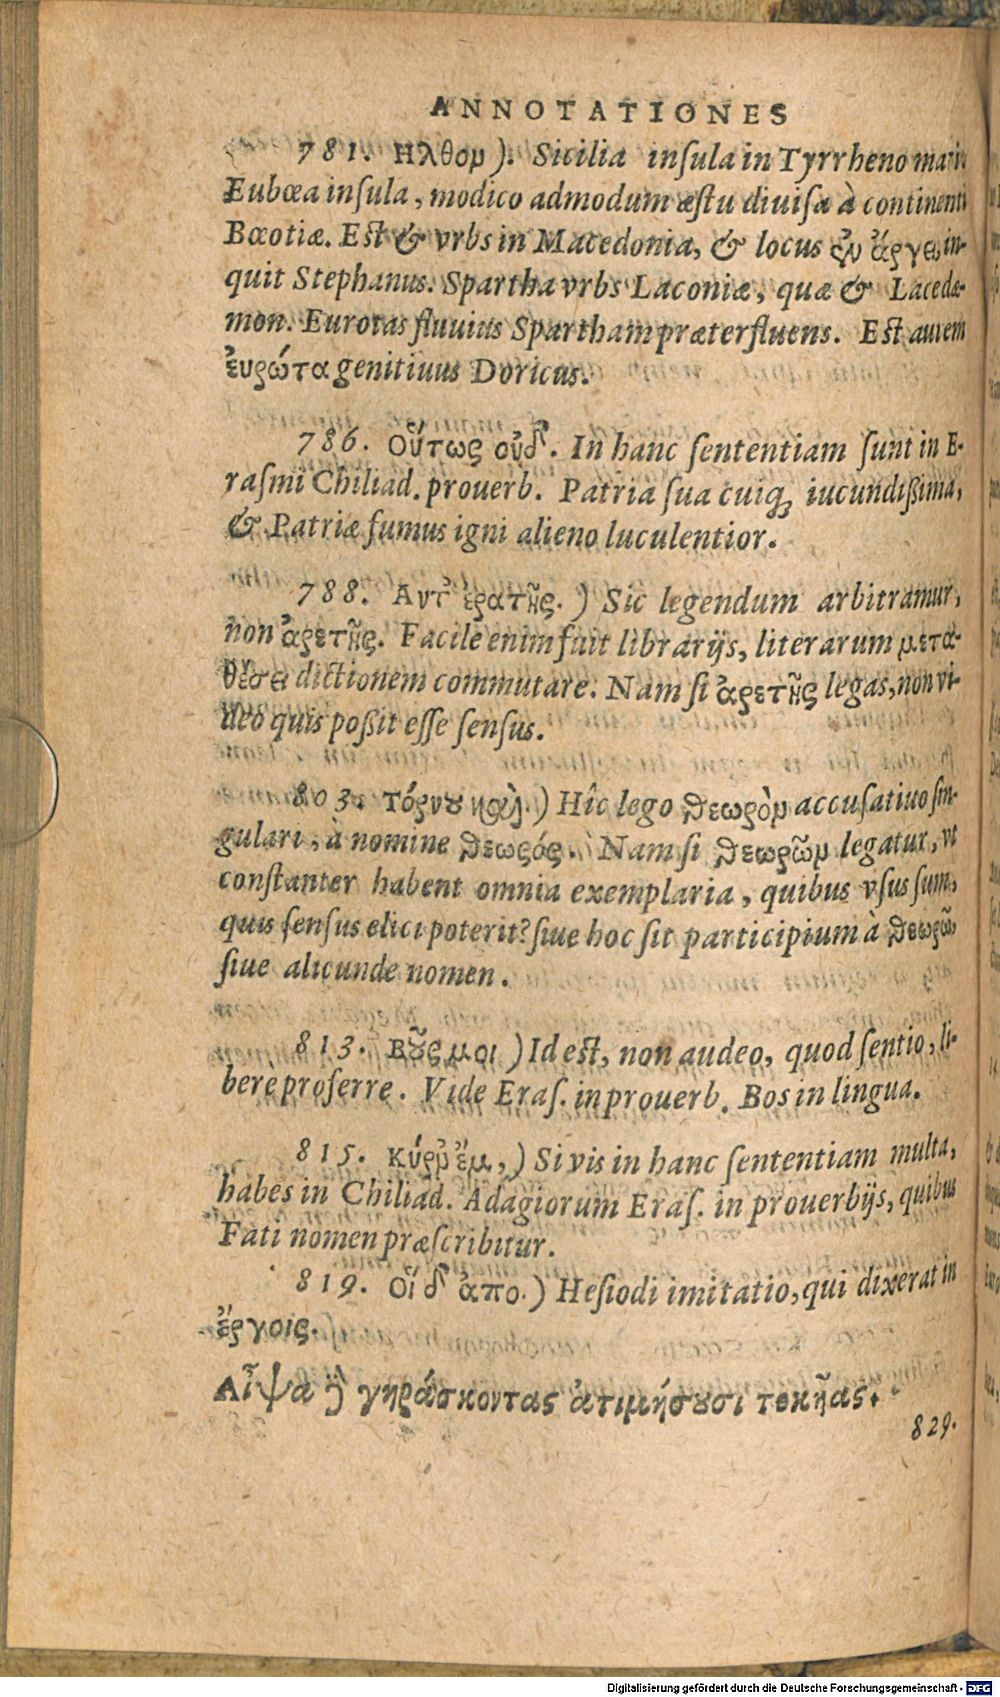 ANNOTATIONES
781. Ηλθομ ). Sicilia inſula in Tyrrheno mari.
Eubœa inſula, modico admodum æſtu diuiſa à continenti
Bœotiæ. Eſt & vrbs in Macedonia, & locus ἐν ἄργει, in-
quit Stephanus. Spartha vrbs Laconiæ, quæ & Lacedæ-
mon. Eurotas fluuius Spartham præterfluens. Eſt autem
ἐυρώτα genitiuus Doricus.
786. Οὕτως οὐδ. In hanc ſententiam ſunt in E-
raſmi Chiliad. prouerb. Patria ſua cuiq; iucundißima,
& Patriæ fumus igni alieno luculentior.
788. Αντ ἐρατῆς. ) Sic legendum arbitramur,
non ἀρετῆς. Facile enim fuit librarijs, literarum μετα-
θέσει dictionem commutare. Nam ſi ἀρετῆς legas, non vi-
deo quis poßit eſſe ſenſus.
803. τόρνου καὶ.) Hîc lego θεωρὸμ accuſatiuo ſin-
gulari, à nomine θεωρός. Nam ſi θεωρῶμ legatur, vt
conſtanter habent omnia exemplaria, quibus vſus ſum,
quis ſenſus elici poterit? ſiue hoc ſit participium à θεωρῶ
ſiue alicunde nomen.
813. βοῦς μοι ) Id eſt, non audeo, quod ſentio, li-
berè proferre. Vide Eraſ. in prouerb. Bos in lingua.
815. κύρν ἔμ,) Si vis in hanc ſententiam multa,
habes in Chiliad. Adagiorum Eraſ. in prouerbijs, quibus
Fati nomen præſcribitur.
819. Οἵ δ ἀπο.) Heſiodi imitatio, qui dixerat in
ἔργοις.
Αἶψα δὲ γηράσκοντας ἀτιμήσουσι τοκῆας.
829.
Digitalisierung gefördert durch die Deutsche Forschungsgemeinschaft - DFG